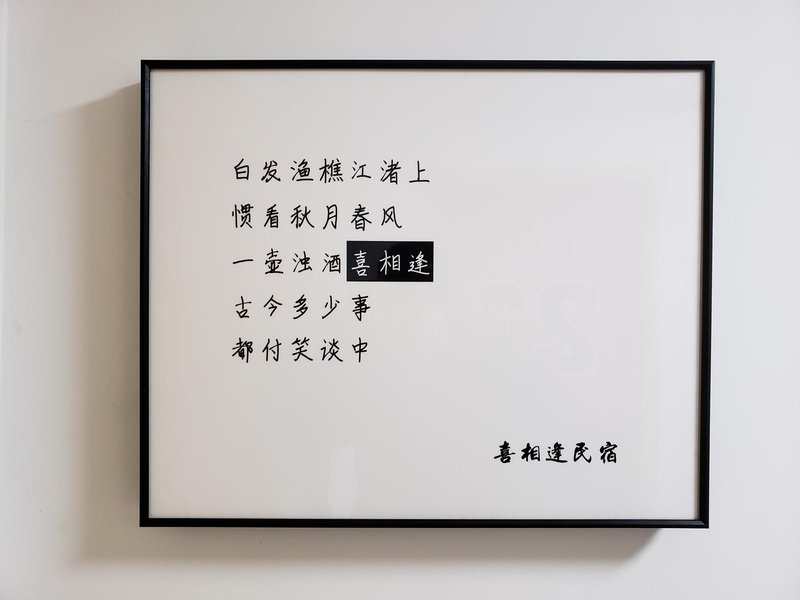 白发渔樵江渚上
惯看秋月春风
一壶浊酒喜相逢
古今多少事
都付笑谈中
喜相逢民宿